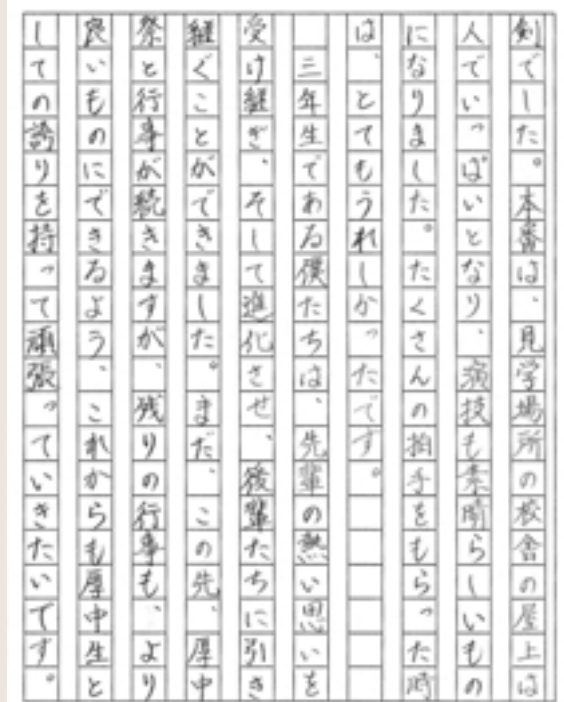 剣でした。本番は、見学場所の校舎の屋上は
人でいっぱいとなり、演技も素晴らしいもの
になりました。たくさんの拍手をもらった時
は、とてもうれしかったです。
三年生である僕たちは、先輩の熱い思いを
受け継ぎ、そして進化させ、後輩たちに引き
継ぐことができました。まだ、この先、厚中
祭と行事が続きますが、残りの行事も、より
良いものにできるよう、これからも厚中生と
しての誇りを持って頑張っていきたいです。